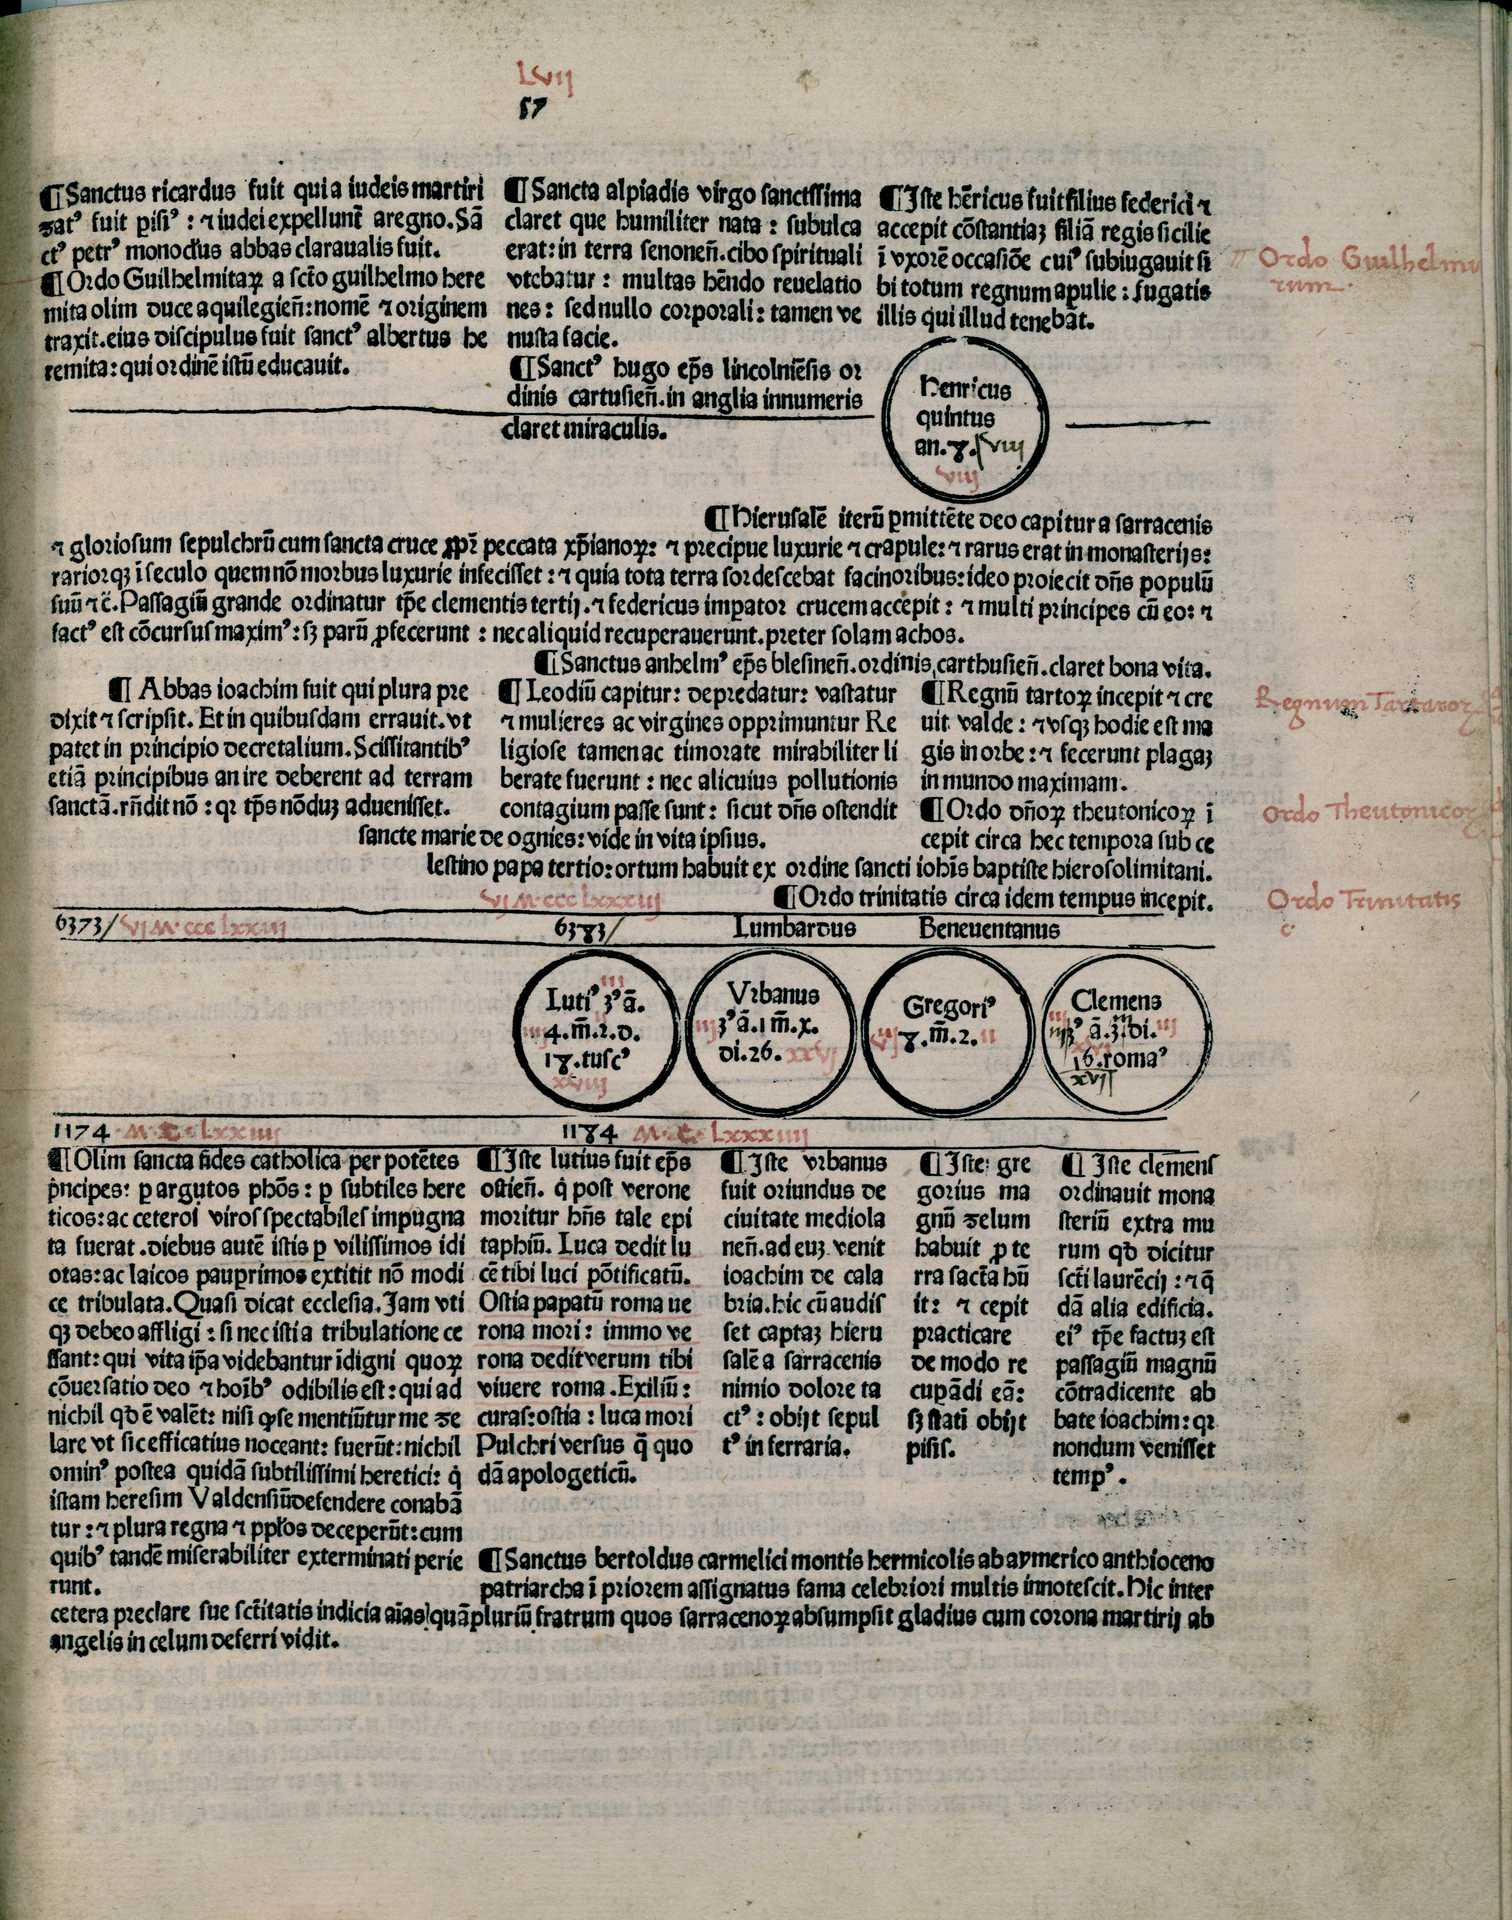 LVII
57
¶Sanctus ricardus fuit qui a iudeis martiri
zatꝰ fuit ꝑisiꝰ : ⁊ iudei expellunt̄ a regno. Sā
ctꝰ petrꝰ monoclꝰ abbas claraualis fuit.
¶Ordo Guilhelmitaꝝ a scto guilhelmo here
mita olim duce aquilegien̄: nomē ⁊ originem
traxit. eius discipulus fuit sanctꝰ albertus he
remita: qui ordinē istū educauit.
¶Sancta alpiadis virgo sanctissima
claret que humiliter nata : subulca
erat: in terra senonen̄. cibo spirituali
vtebatur : multas hēndo reuelatio
nes: sed nullo corporali: tamen ve
nusta facie.
¶Sanctꝰ hugo ep̄s lincolniēsis or
dinis cartusien̄. in anglia innumeris
claret miraculis.
¶Iste hēricus fuit filius federici ⁊
accepit cōstantiaꝫ filiā regis sicilie
ī vxorē occasiōe cuiꝰ subiugauit si
bi totum regnum apulie : fugatis
illis qui illud tenebāt.
Ordo Guilhelmi
rum.
Henricus
quintus
an. 8. VIII
viij
¶Hierusalē iterū ꝑmittēte deo capitur a sarracenis
⁊ gloriosum sepulchrū cum sancta cruce ꝓpt̄ peccata xp̄ianoꝝ: ⁊ precipue luxurie ⁊ crapule: ⁊ rarus erat in monasterijs:
rariorqꝫ ī seculo quem nō morbus luxurie infecisset : ⁊ quia tota terra sordescebat facinoribus: ideo proiecit dn̄s populū
suū ⁊ c̄. Passagiū grande ordinatur tꝑe clementis tertij. ⁊ federicus impator crucem accepit : ⁊ multi principes cū eo: ⁊
factꝰ est cōcursus maximꝰ: sꝫ parū ꝓfecerunt : nec aliquid recuperauerunt. preter solam achos.
¶Sanctus anhelmꝰ ep̄s blesinen̄. ordinis carthusien̄. claret bona vita.
¶ Abbas ioachim fuit qui plura pre
dixit ⁊ scripsit. Et in quibusdam errauit. vt
patet in principio decretalium. Scissitantibꝰ
etiā principibus an ire deberent ad terram
sanctā. rn̄dit nō : qr tp̄s nōduꝫ aduenisset.
¶ Leodiū capitur: depredatur: vastatur
⁊ mulieres ac virgines opprimuntur Re
ligiose tamen ac timorate mirabiliter li
berate fuerunt : nec alicuius pollutionis
contagium passe sunt: sicut dn̄s ostendit
sancte marie de ognies: vide in vita ipsius.
¶Regnū tartoꝝ incepit ⁊ cre
uit valde : ⁊ vsqꝫ hodie est ma
gis in orbe : ⁊ fecerunt plagaꝫ
in mundo maximam.
¶Ordo dn̄oꝝ theutonicoꝝ ī
cepit circa hec tempora sub ce
lestino papa tertio: ortum habuit ex ordine sancti ioh̄is baptiste hierosolimitani.
¶Ordo trinitatis circa idem tempus incepit.
Regnum Tartaror
Ordo Theutonicor
Ordo Trinitatis
c
6373/ VI M ccc lxxiij
VI M ccc lxxxiij
6383/
Lumbardus
Beneuentanus
Lutiꝰ 3ꝰ ā.
4. m̄. 2. d.
18. tuscꝰ
xviij
Vrbanus
3ꝰ ā. 1 m̄. x.
di. 26. xxvj
Gregoriꝰ
8. m̄. 2. ii
Clemens
3ꝰ ā. 3. di.
16. romaꝰ
xvij
1174 M C lxxiiij
1184 M C lxxxiiij
¶Olim sancta fides catholica per potētes
pͥncipes: ꝑ argutos phōs: ꝑ subtiles here
ticos: ac ceteroſ viros spectabiles impugna
ta fuerat. diebus autē istis ꝑ vilissimos idi
otas: ac laicos pauꝑrimos extitit nō modi
ce tribulata. Quasi dicat ecclesia. Jam vti
qꝫ debeo affligi : si nec isti a tribulatione ce
ssant: qui vita ip̄a videbantur īdigni quoꝝ
cōuersatio deo ⁊ hoīꝰ odibilis est : qui ad
nichil qd ē valēt: nisi ꝙ se mentiūtur me ze
lare vt sic efficatius noceant: fuerūt: nichil
ominꝰ postea quidā subtilissimi heretici: qͥ
istam heresim Valdensiū defendere conabā
tur : ⁊ plura regna ⁊ ppl̄os deceperūt: cum
quibꝰ tandē miserabiliter exterminati perie
runt.
¶Iste lutius fuit ep̄s
ostien̄. qͥ post verone
moritur hn̄s tale epi
taphiū. Luca dedit lu
cē tibi luci pōtificatū.
Ostia papatū roma ve
rona mori: immo ve
rona dedit verum tibi
viuere roma. Exiliū:
curas: ostia : luca mori
Pulchri versus q̄ quo
dā apologeticū.
¶Iste vrbanus
fuit oriundus de
ciuitate mediola
nen̄. ad euꝫ venit
ioachim de cala
bria. hic cū audis
set captaꝫ hieru
salē a sarracenis
nimio dolore ta
ctꝰ : obijt sepul
tꝰ in ferraria.
¶Iste: gre
gorius ma
gnū zelum
habuit ꝓ te
rra sācta hū
it: ⁊ cepit
practicare
de modo re
cupādi eā:
sꝫ stati obijt
pisis.
¶ Iste clemens
ordinauit mona
steriū extra mu
rum qd dicitur
scti laurēcij : ⁊ q̄
dā alia edificia.
eiꝰ tꝑe factuꝫ est
passagiū magnū
cōtradicente ab
bate ioachim: qr
nondum venisset
tempꝰ.
¶Sanctus bertoldus carmelici montis hermicolis ab aymerico anthioceno
patriarcha ī priorem assignatus fama celebriori multis innotescit. Hic inter
cetera preclare sue sctitatis indicia aīas quāplurium fratrum quos sarracenoꝝ absumpsit gladius cum corona martirij ab
angelis in celum deferri vidit.